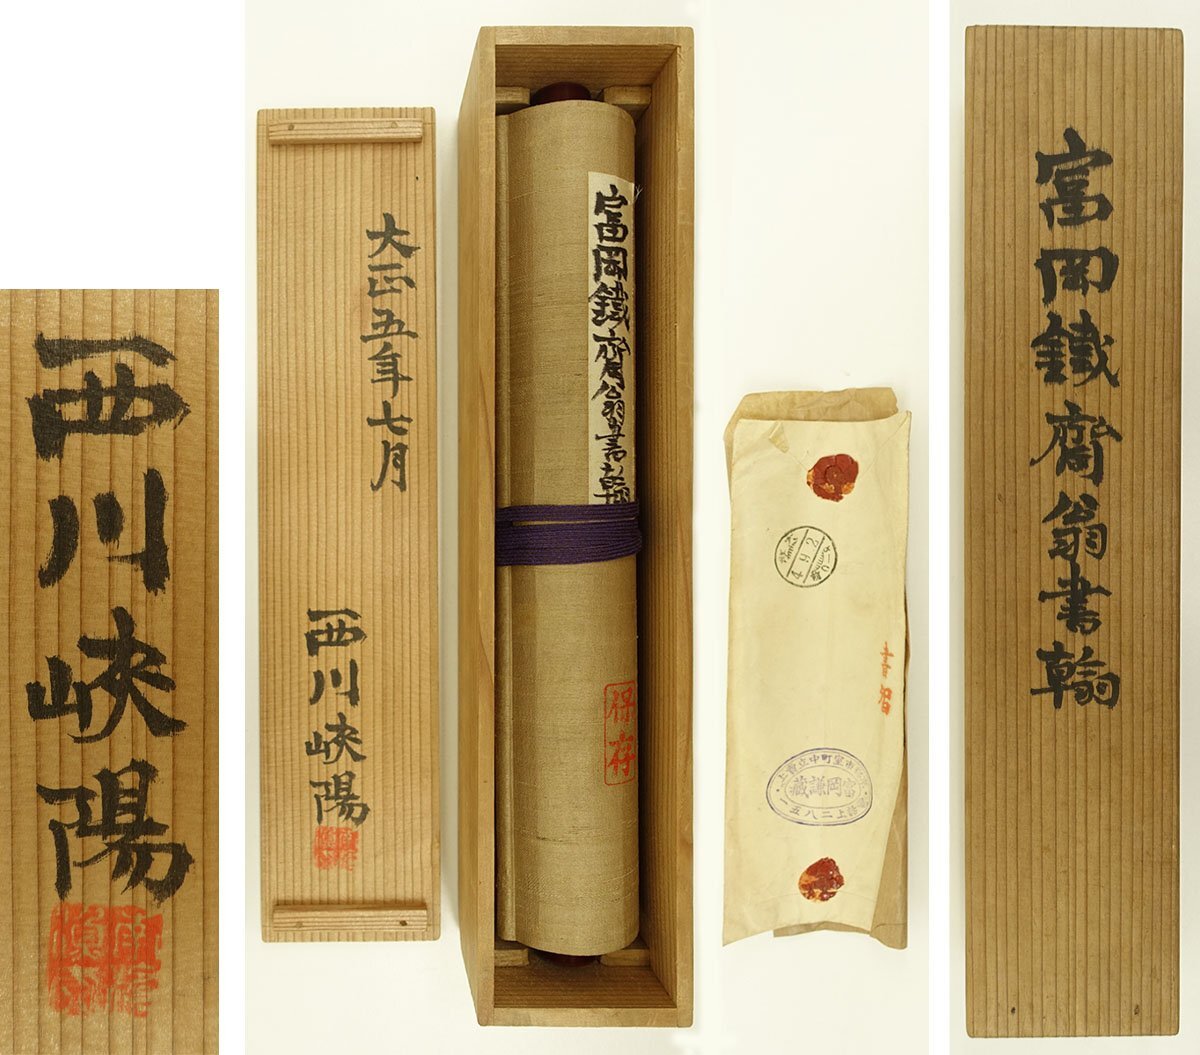 西川峡陽
大正五年七月
西川峡陽
富岡鐵齋翁書翰
保存
4 9 2
書留
上立賣
中町室市
富岡謙藏
上二八五一
富岡鐵齋翁書翰